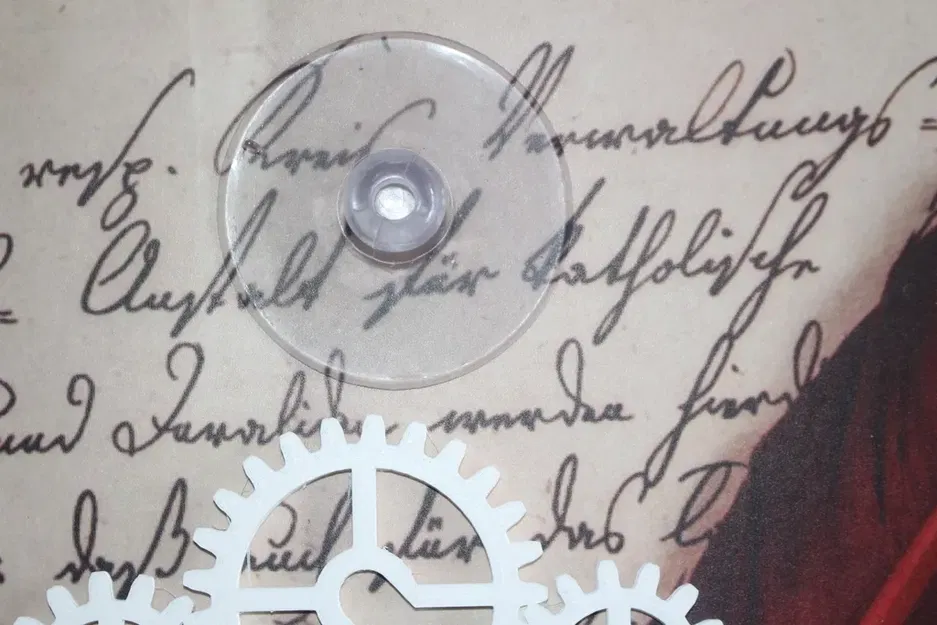 resp. Kreis Verwaltungs=
= Anstalt für katholische
und Invaliden werden hierd
daß auch für das